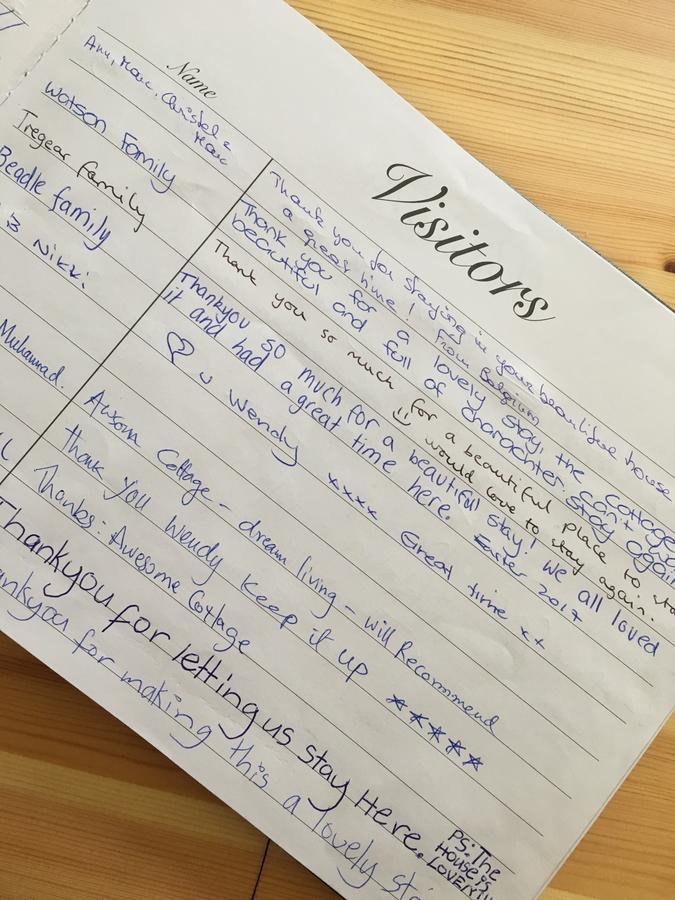 Visitors
Name
Ann, Marc, Christel &
Marc
Thank you for staying in your beautiful house
a great time! From Belgium
Watson Family
Thank you for a lovely stay, the Cottage
beautiful and full of charachter. can't
stay again
Tregear family
Thank you so much for a beautiful place to
☺ would love to stay again.
Beadle family
Thankyou so much for a beautiful stay! we all loved
it and had a great time here. Easter 2017
Nikki
♡ u Wendy xxxx Great time xx
Muhammad.
Awsom Cottage - dream living - will Recommend
Thank you Wendy Keep it up ★★★★★
Thanks. Awesome Cottage
Thankyou for letting us stay Here.
PS: The
House is
LOVELY!!
for making this a lovely